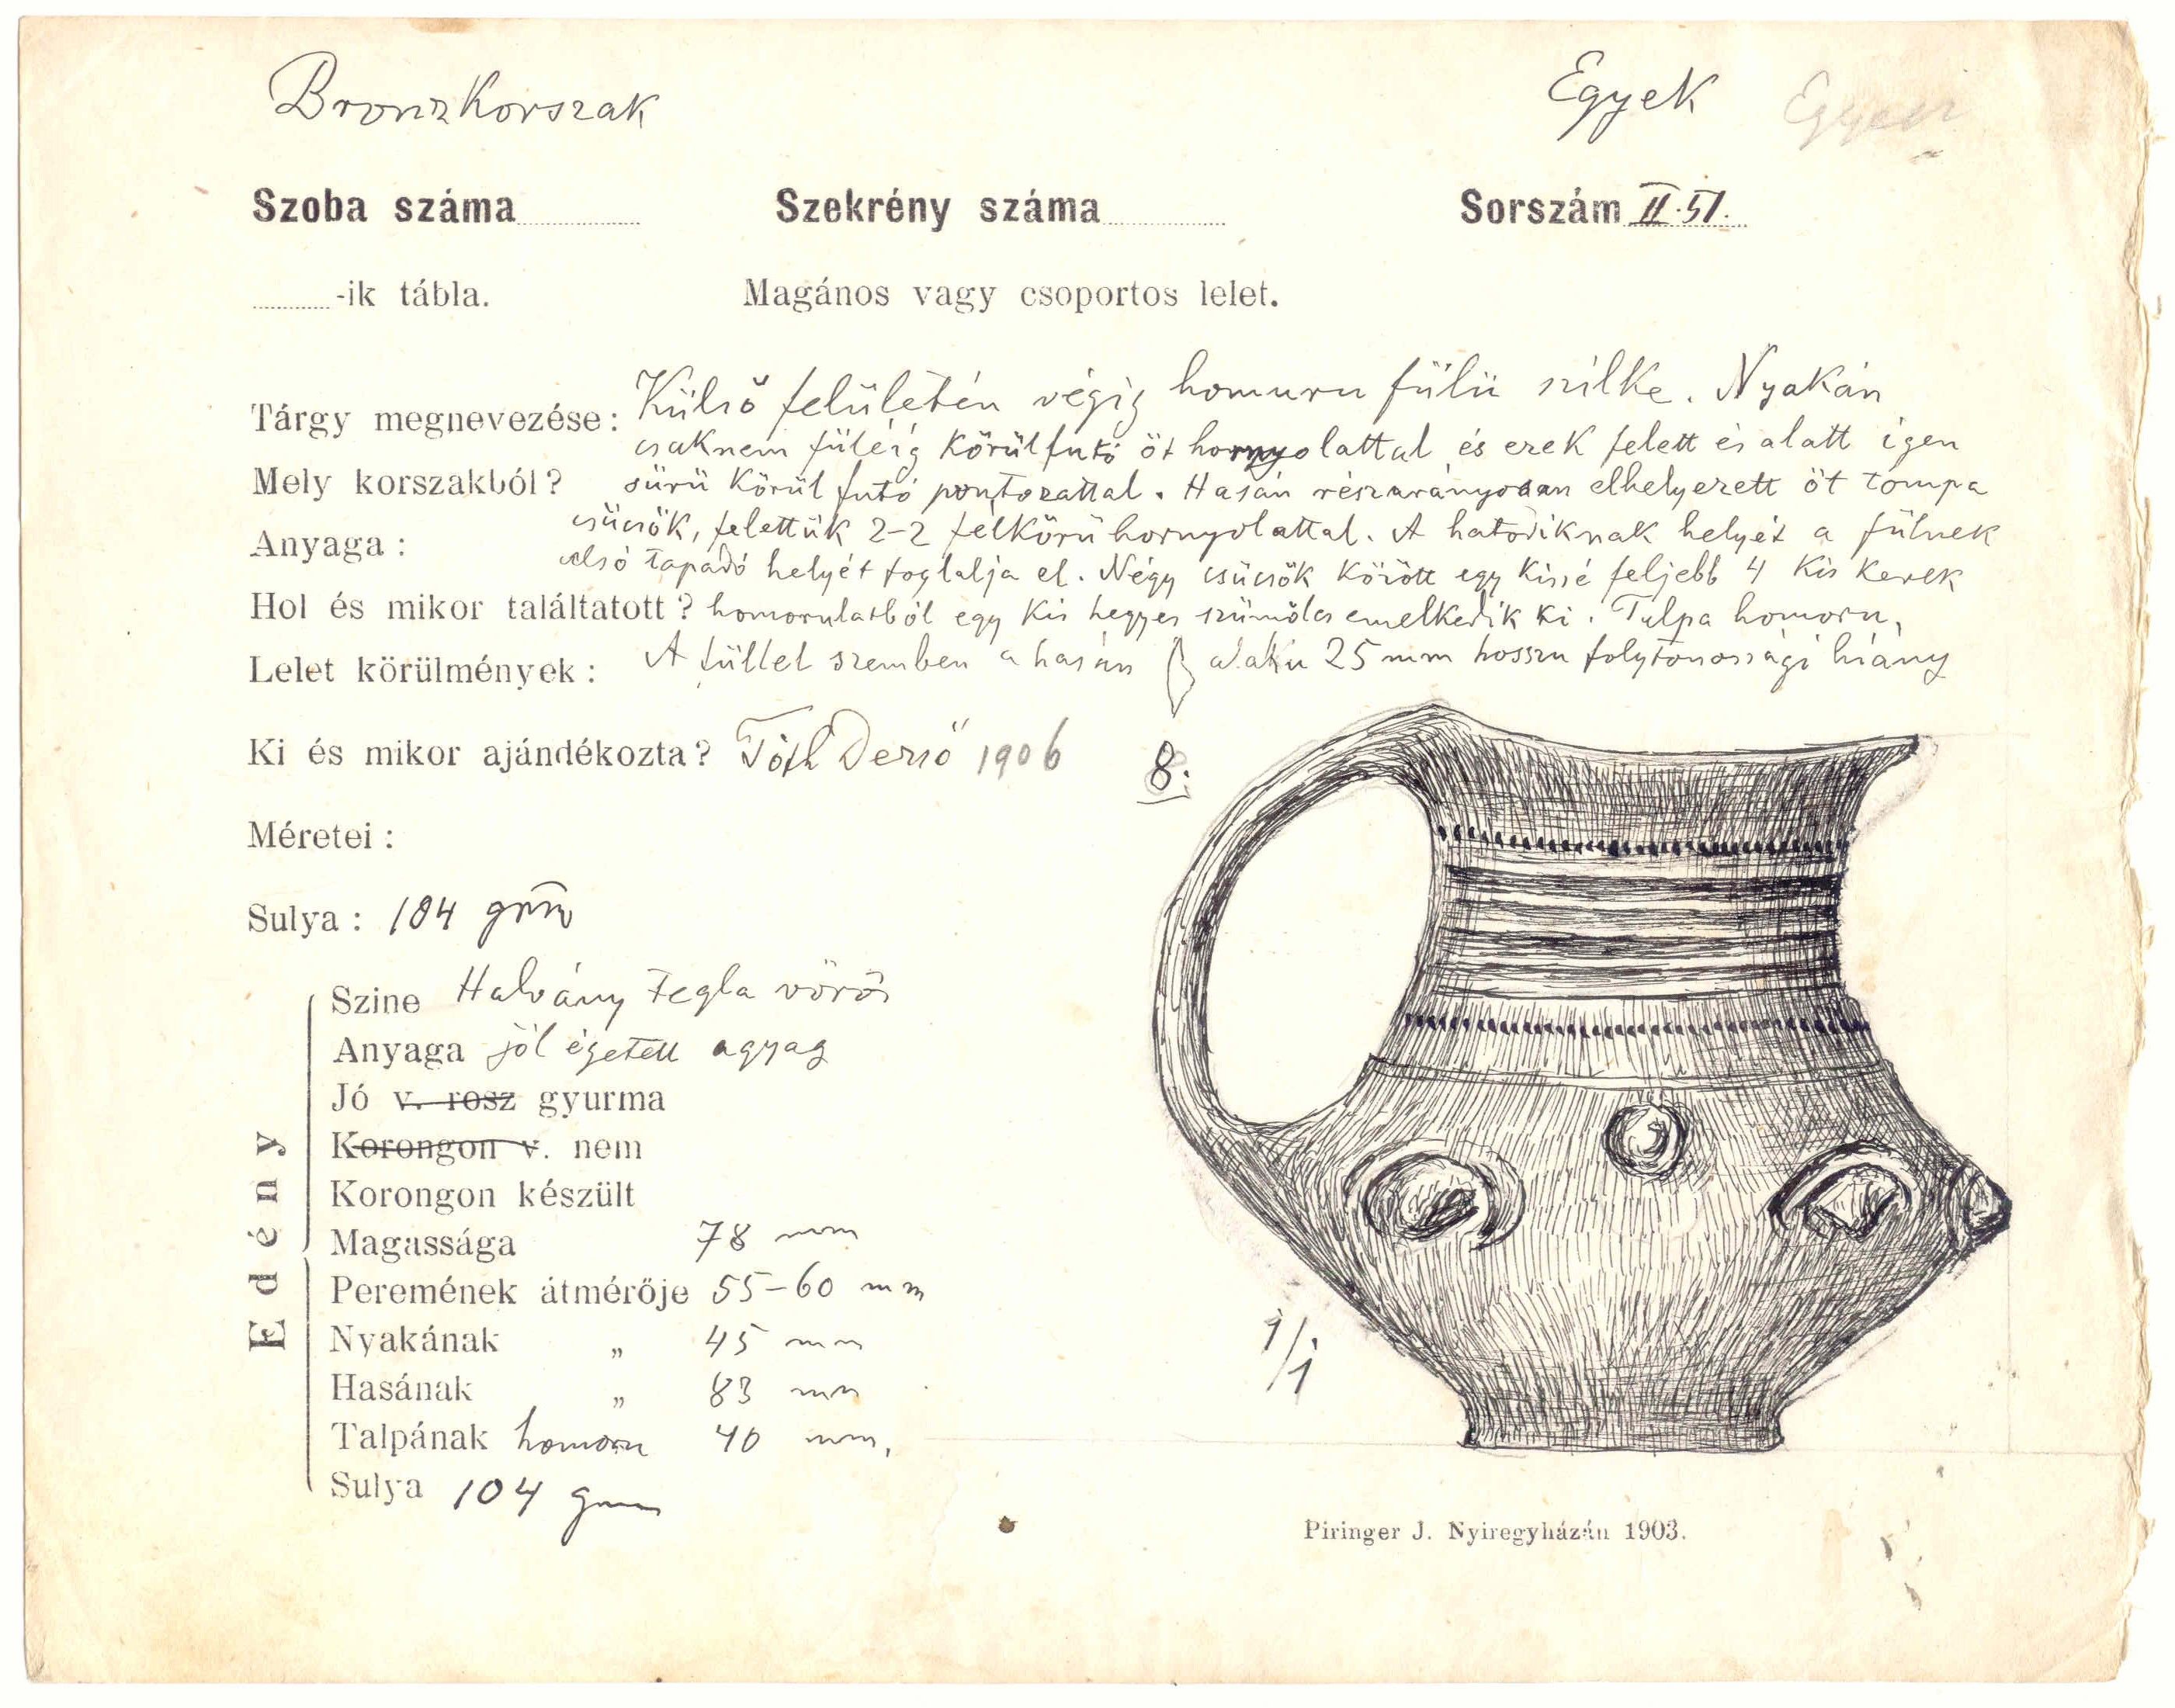 Bronzkorszak
Egyek
Szoba száma
Szekrény száma
Sorszám II.51.
-ik tábla.
Magános vagy csoportos lelet.
Tárgy megnevezése: Külső felületén végig homuru fülü szilke. Nyakán
csaknem füléig körülfutó öt hornyolattal és ezek felett és alatt igen
Mely korszakból? sürü körül futó pontozattal. Hasán részarányosan elhelyezett öt tompa
csücsök, felettük 2-2 félkörü hornyolattal. A hatodiknak helyét a fülnek
Anyaga:
alsó tapadó helyét foglalja el. Négy csücsök között egy kissé feljebb 4 kis kerek
Hol és mikor találtatott? homorulatból egy kis hegyes szümölcs emelkedik ki. Talpa homoru,
Lelet körülmények: A füllel szemben a hasán alaku 25 mm hosszu folytonossági hiány
Ki és mikor ajándékozta? Tóth Dezső 1906
8.
Méretei:
Sulya: 104 grm
Edény
Szine Halvány tégla vörös
Anyaga jól égetett agyag
Jó v. rosz gyurma
Korongon v. nem
Korongon készült
Magassága 78 mm
Peremének átmérője 55-60 mm
Nyakának „ 45 mm
Hasának „ 83 mm
Talpának homoru 40 mm,
Sulya 104 grm
1/1
Piringer J. Nyiregyházán 1903.